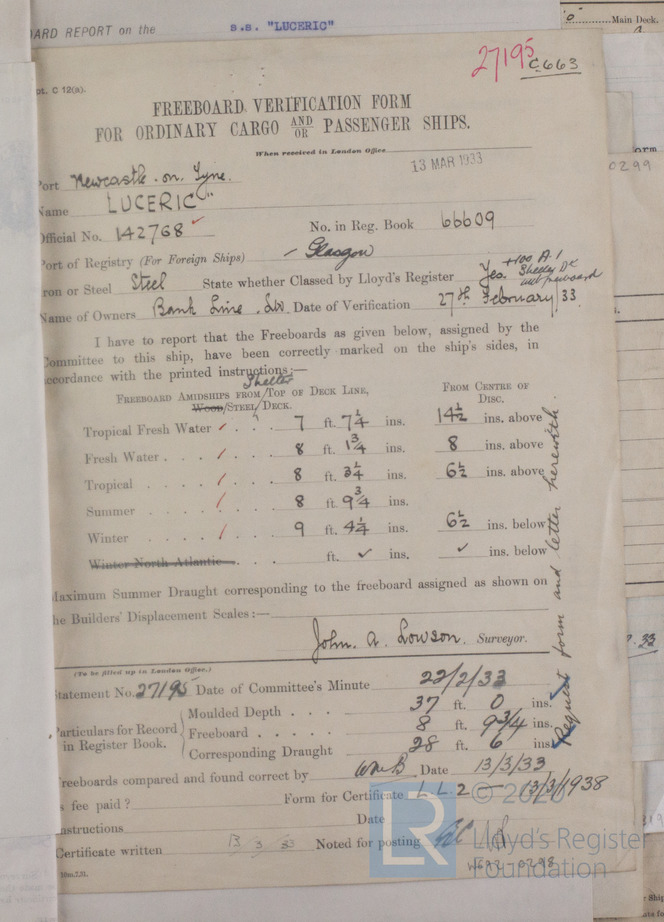 ARD REPORT on the s.s. "LUCERIC"
Main Deck.
27195
C663
pt. C 12(a).
FREEBOARD VERIFICATION FORM
FOR ORDINARY CARGO AND/OR PASSENGER SHIPS.
When received in London Office
13 MAR 1933
Port Newcastle on Tyne.
Name LUCERIC"
Official No. 142768 No. in Reg. Book 66609
Port of Registry (For Foreign Ships) Glasgow
Iron or Steel Steel State whether Classed by Lloyd's Register Yes. +100 A.1 Shelter Dk
with freeboard
Name of Owners Bank Line. Ltd Date of Verification 27th February/33.
I have to report that the Freeboards as given below, assigned by the
Committee to this ship, have been correctly marked on the ship's sides, in
accordance with the printed instructions:—
Shelter
FREEBOARD AMIDSHIPS FROM/TOP OF DECK LINE,
WOOD/STEEL/DECK.
FROM CENTRE OF
DISC.
Tropical Fresh Water . . . 7 ft. 7 1/4 ins. 14 1/2 ins. above
Fresh Water . . . . 8 ft. 1 3/4 ins. 8 ins. above
Tropical . . . . 8 ft. 3 1/4 ins. 6 1/2 ins. above
Summer . . . . 8 ft. 9 3/4 ins.
Winter . . . . 9 ft. 4 1/4 ins. 6 1/2 ins. below
Winter North Atlantic . . . ft. ✓ ins. ✓ ins. below
Request form and letter herewith.
Maximum Summer Draught corresponding to the freeboard assigned as shown on
the Builders' Displacement Scales:—
John. A. Lowson. Surveyor.
(To be filled up in London Office.)
Statement No. 27195 Date of Committee's Minute 22/2/33
Particulars for Record
in Register Book.
Moulded Depth . . . 37 ft. 0 ins.
Freeboard . . . . . 8 ft. 9 3/4 ins.
Corresponding Draught 28 ft. 6 ins.
Freeboards compared and found correct by Date 13/3/33
Is fee paid? Form for Certificate L.L.2 — 13/3/1938
Instructions Date
Certificate written 13 3 33 Noted for posting
10m.7.31.
LR
© 2020
Lloyd's Register
Foundation
W672-0298
0299